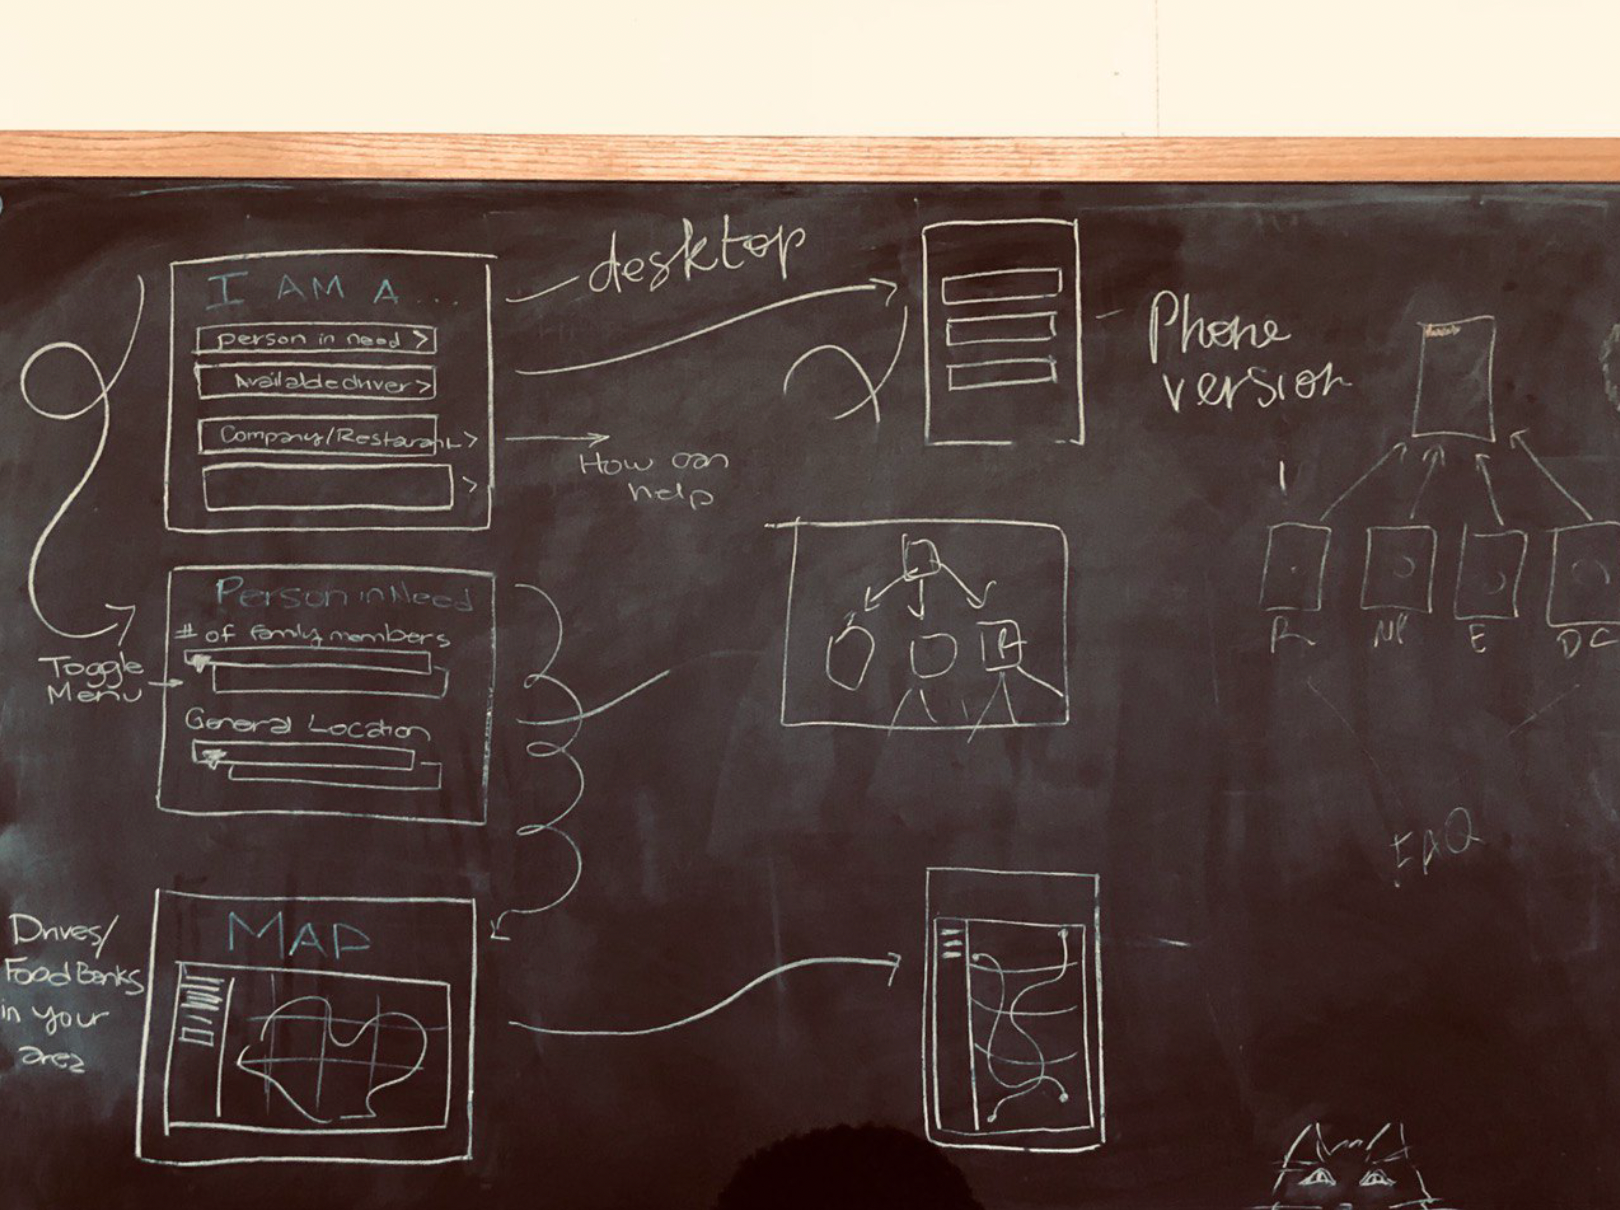 I AM A ...
person in need >
Available driver >
Company/Restaurant >
>
desktop
How can
help
Phone
version
Person in Need
# of family members
General Location
Toggle
Menu
MAP
Drives/
Food Banks
in your
area
R
NP
E
DC